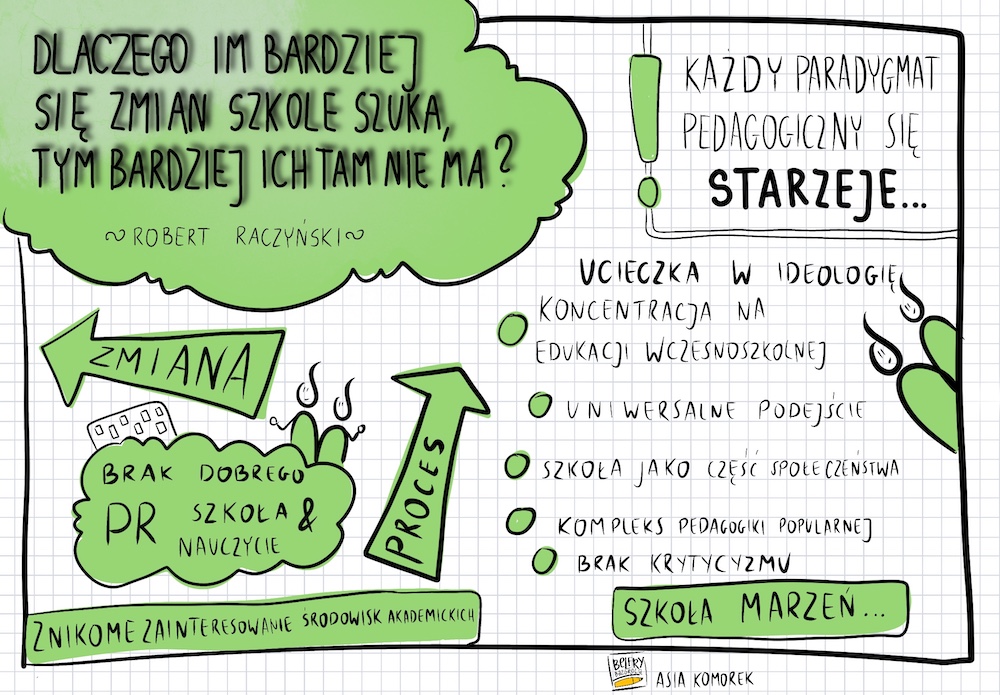 DLACZEGO IM BARDZIEJ
SIĘ ZMIAN SZKOLE SZUKA,
TYM BARDZIEJ ICH TAM NIE MA?
~ROBERT RACZYŃSKI~
KAŻDY PARADYGMAT
PEDAGOGICZNY SIĘ
STARZEJE...
ZMIANA
BRAK DOBREGO
PR SZKOŁA &
NAUCZYCIE
PROCES
ZNIKOME ZAINTERESOWANIE ŚRODOWISK AKADEMICKICH
UCIECZKA W IDEOLOGIĘ
KONCENTRACJA NA
EDUKACJI WCZESNOSZKOLNEJ
UNIWERSALNE PODEJŚCIE
SZKOŁA JAKO CZĘŚĆ SPOŁECZEŃSTWA
KOMPLEKS PEDAGOGIKI POPULARNEJ
BRAK KRYTYCYZMU
SZKOŁA MARZEŃ...
ASIA KOMOREK